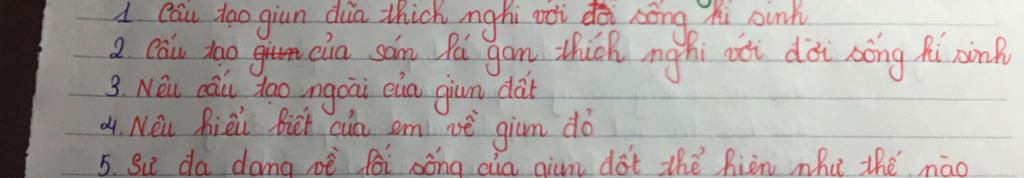 1. Cấu tạo giun đũa thích nghi với đời sống kí sinh
2. Cấu tạo của sán lá gan thích nghi với đời sống kí sinh
3. Nêu cấu tạo ngoài của giun đất
4. Nêu hiểu biết của em về giun đỏ
5. Sự đa dạng về lối sống của giun đốt thể hiện như thế nào